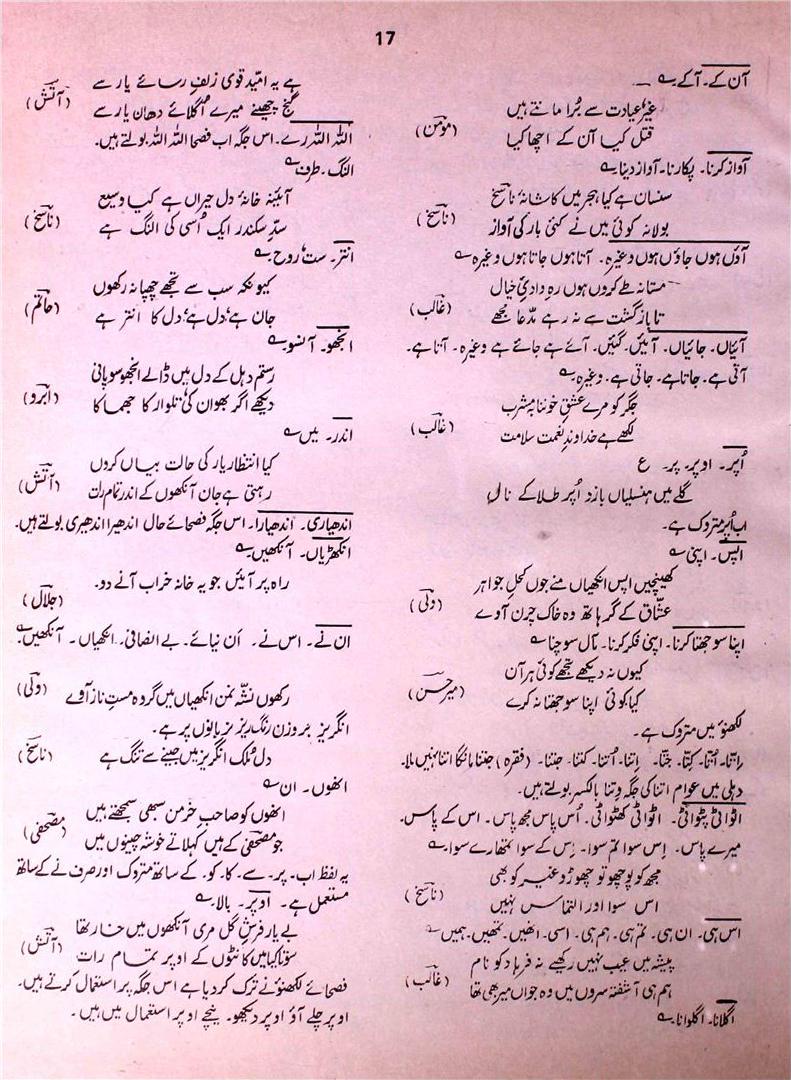 17
آن کے۔ آکے۔
غیر عیادت سے بُرا مانتے ہیں
قتل کیا آن کے اچھا کیا (مومن)
آواز کرنا۔ پکارنا۔ آواز دینا۔
سنسان ہے کیا ہجر میں کاشانۂ ناسخ
بولا نہ کوئی میں نے کئی بار کی آواز (ناسخ)
آؤں ہوں جاؤں ہوں وغیرہ۔ آتا ہوں جاتا ہوں وغیرہ
مستانہ طے کروں ہوں رہِ وادیِ خیال
تا بازگشت سے نہ رہے مدّعا مجھے (غالب)
آئیاں۔ جائیاں۔ آئیں۔ گئیں۔ آئے ہے جائے ہے وغیرہ۔ آتا ہے۔
آتی ہے۔ جاتا ہے۔ جاتی ہے۔ وغیرہ
جگر کو مرے عشقِ خوننابہ مشرب
لکھے ہے خداوندِ نعمت سلامت (غالب)
اُپر۔ اوپر۔ پر۔ ع
گلے میں ہنسلیاں بازو اُپر طلا کے نال
اب اُپر متروک ہے۔
اپس۔ اپنی
کھینچیں اپس انکھیاں منے جوں کحلِ جواہر
عشّاق کے گر ہاتھ وہ خاک چرن آوے (ولی)
اپنا سوجھتا کرنا۔ اپنی فکر کرنا۔ مآل سوچنا
کیوں نہ دیکھے تجھے کوئی ہر آن
کیا کوئی اپنا سوجھتا نہ کرے (میر حسن)
لکھنؤ میں متروک ہے۔
اِتنا۔ اُتنا۔ کِتنا۔ جِتنا۔ (فقرہ) جتنا مانگا اتنا نہیں ملا۔
دہلی میں عوام اتنا کی جگہ وِتنا بالکسر بولتے ہیں۔
اٹوائی پٹوائی۔ اٹوائی کھٹوائی۔ اُس پاس مجھ پاس۔ اس کے پاس۔
میرے پاس۔ اِس سوا تم سوا۔ اِس کے سوا تمھارے سوا۔
مجھ کو پوچھو تو چھوڑو غیر کو بھی
اس سوا اور التماس نہیں (ناسخ)
اس ہی۔ ان ہی۔ تم ہی۔ ہم ہی۔ اسی۔ انھیں۔ تمھیں۔ ہمیں
پیشہ میں عیب نہیں رکھیے نہ فرہاد کو نام
ہم ہی آشفتہ سروں میں وہ جواں میر بھی تھا (غالب)
اگلانا۔ اگلوانا۔
ہے یہ امید قوی زلفِ رسائے یار سے
گنج چھینے میرے اُگلائے دھان یار سے (آتش)
اللہ اللہ رے۔ اس جگہ اب فصحا اللہ اللہ بولتے ہیں۔
النگ۔ طرف
آئینہ خانۂ دل حیراں ہے کیا وسیع
سدِّ سکندر ایک اُسی کی النگ ہے (ناسخ)
انتر۔ ست روح
کیونکہ سب سے تجھے چھپا نہ رکھوں
جان ہے دل ہے دل کا انتر ہے (حاتم)
انجھو۔ آنسو
رستم دہل کے دل میں ڈالے انجھو سو پانی
دیکھے اگر بھواں کی تلوار کا جھماکا (آبرو)
اندر۔ میں
کیا انتظارِ یار کی حالت بیاں کروں
رہتی ہے جان آنکھوں کے اندر تمام رات (آتش)
اندھیاری۔ اندھیارا۔ اس جگہ فصحائے حال اندھیرا اندھیری بولتے ہیں۔
انکھڑیاں۔ آنکھیں
راہ پر آئیں جو یہ خانہ خراب آنے دو۔
(جلال)
ان نے۔ اس نے۔ اَن نیائے۔ بے انصافی۔ انکھیاں۔ آنکھیں۔
رکھوں نشہ نمن انکھیاں میں گر وہ مستِ ناز آوے (ولی)
انگریز بر وزن رنگ ریز زبانوں پر ہے۔
دل مُلک انگریز میں جینے سے تنگ ہے (ناسخ)
انھوں۔ ان
انھوں کو صاحبِ خرمن سبھی سمجھتے ہیں
جو مصحفی کے ہیں کہلاتے خوشہ چینوں میں (مصحفی)
یہ لفظ اب۔ پر۔ سے۔ کا۔ کو۔ کے ساتھ متروک اور صرف نے کے ساتھ
مستعمل ہے۔ اوپر۔ بالا۔
بے یار فرشِ گل مری آنکھوں میں خار تھا
سویا کیا میں کانٹوں کے اوپر تمام رات (آتش)
فصحائے لکھنؤ نے ترک کر دیا ہے اس جگہ پر استعمال کرتے ہیں۔
اوپر چلے آؤ اوپر دیکھو۔ نیچے اوپر استعمال میں ہیں۔